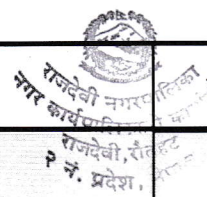 राजदेवी नगरपालिका
नगर कार्यपालिकाको
राजदेवी, रौतहट
२ नं. प्रदेश,